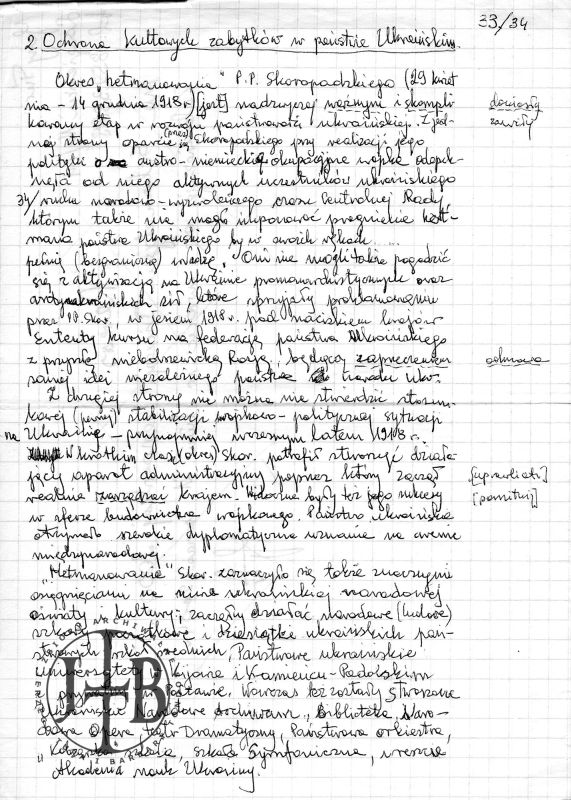 33/34
2. Ochrona kultowych zabytków w państwie Ukraińskim.
Okres „hetmanowania" P.P. Skoropadzkiego (29 kwiet
nia – 14 grudnia 1918 r.) [jest] nadzwyczaj ważnym i skompli
doniosły
kowany etap w rozwoju państwowości ukraińskiej. Z jed-
zawiły
nej strony oparcie się (przez) Skoropadskiego przy realizacji jego
polityki o austro-niemieckie okupacyjne wojska odepch-
nęła od niego aktywnych uczestników ukraińskiego
34/ ruchu narodowo-wyzwoleńczego oraz Centralnej Rady
którym także nie mogło imponować pragnienie het-
mana państwa Ukraińskiego by w swoich rękach
pełnię (bezgraniczną) władzę. Oni nie mogli także pogodzić
się z aktywizacją na Ukrainie promonarchistycznych oraz
antyukraińskich sił które sprzyjały proklamowaniu
przez P.P. Skor. w jesieni 1918 r. pod naciskiem krajów
Ententy kursu na federację państwa Ukraińskiego
z przyszłą niebolszewicką Rosją, będącą zaprzeczeniem
odmowa
samej idei niezależnego państwa narodu Ukr.
Z drugiej strony nie można nie stwierdzić stosun-
kowej (pewnej) stabilizacji wojskowo-politycznej sytuacji
na Ukrainie – przynajmniej wczesnym latem 1918 r.
W krótkim czasie (okres) Skor. potrafił stworzyć działa-
jący aparat administracyjny poprzez który zaczął
realnie zarządzać krajem. Widoczne były też jego sukcesy
[pomitni]
w sferze budownictwa wojskowego. Państwo ukraińskie
otrzymało szerokie dyplomatyczne uznanie na arenie
międzynarodowej.
„Hetmanowanie" Skor. zaznaczyło się także znacznymi
osiągnięciami na niwie ukraińskiej narodowej
oświaty i kultury; zaczęły działać narodowe (ludowe)
szkoły i dziesiątki ukraińskich pań-
stwowych szkół średnich, Państwowe ukraińskie
Uniwersytety Kijowie i Kamieńcu-Podolskim
Połtawie. Wówczas też zostały stworzone
Narodowe Archiwum, Biblioteka, Naro-
dowa Opera, Teatr Dramatyczny, Państwowa orkiestra,
szkoła Symfoniczna, wreszcie
Akademia nauk Ukrainy.